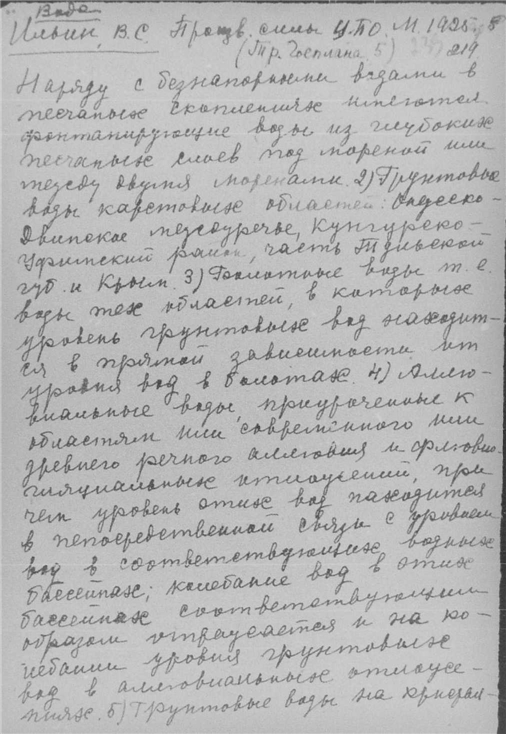 Вода
Ильин, В.С. Произв. силы ЦПО. М. 1925
(Тр. Госплана 5) 219
Наряду с безнапорными водами в
песчаных скоплениях имеются
фонтанирующие воды из глубоких
песчаных слоев под мореной или
между двумя моренами. 2) Грунтовые
воды карстовых областей: Онежско-
Двинское междуречье, Кунгурско-
Уфимский район, часть Тульской
губ. и Крым. 3) Болотные воды т.е.
воды тех областей, в которых
уровень грунтовых вод находит-
ся в прямой зависимости от
уровня вод в болотах. 4) Аллю-
виальные воды, приуроченные к
областям или современного или
древнего речного аллювия и флювио-
гляциальных отложений, при
чем уровень этих вод находится
в непосредственной связи с уровнем
вод в соответствующих водных
бассейнах; колебание вод в этих
бассейнах соответствующим
образом отражается и на ко-
лебании уровня грунтовых
вод в аллювиальных отложе-
ниях. 5) Грунтовые воды на кристал-